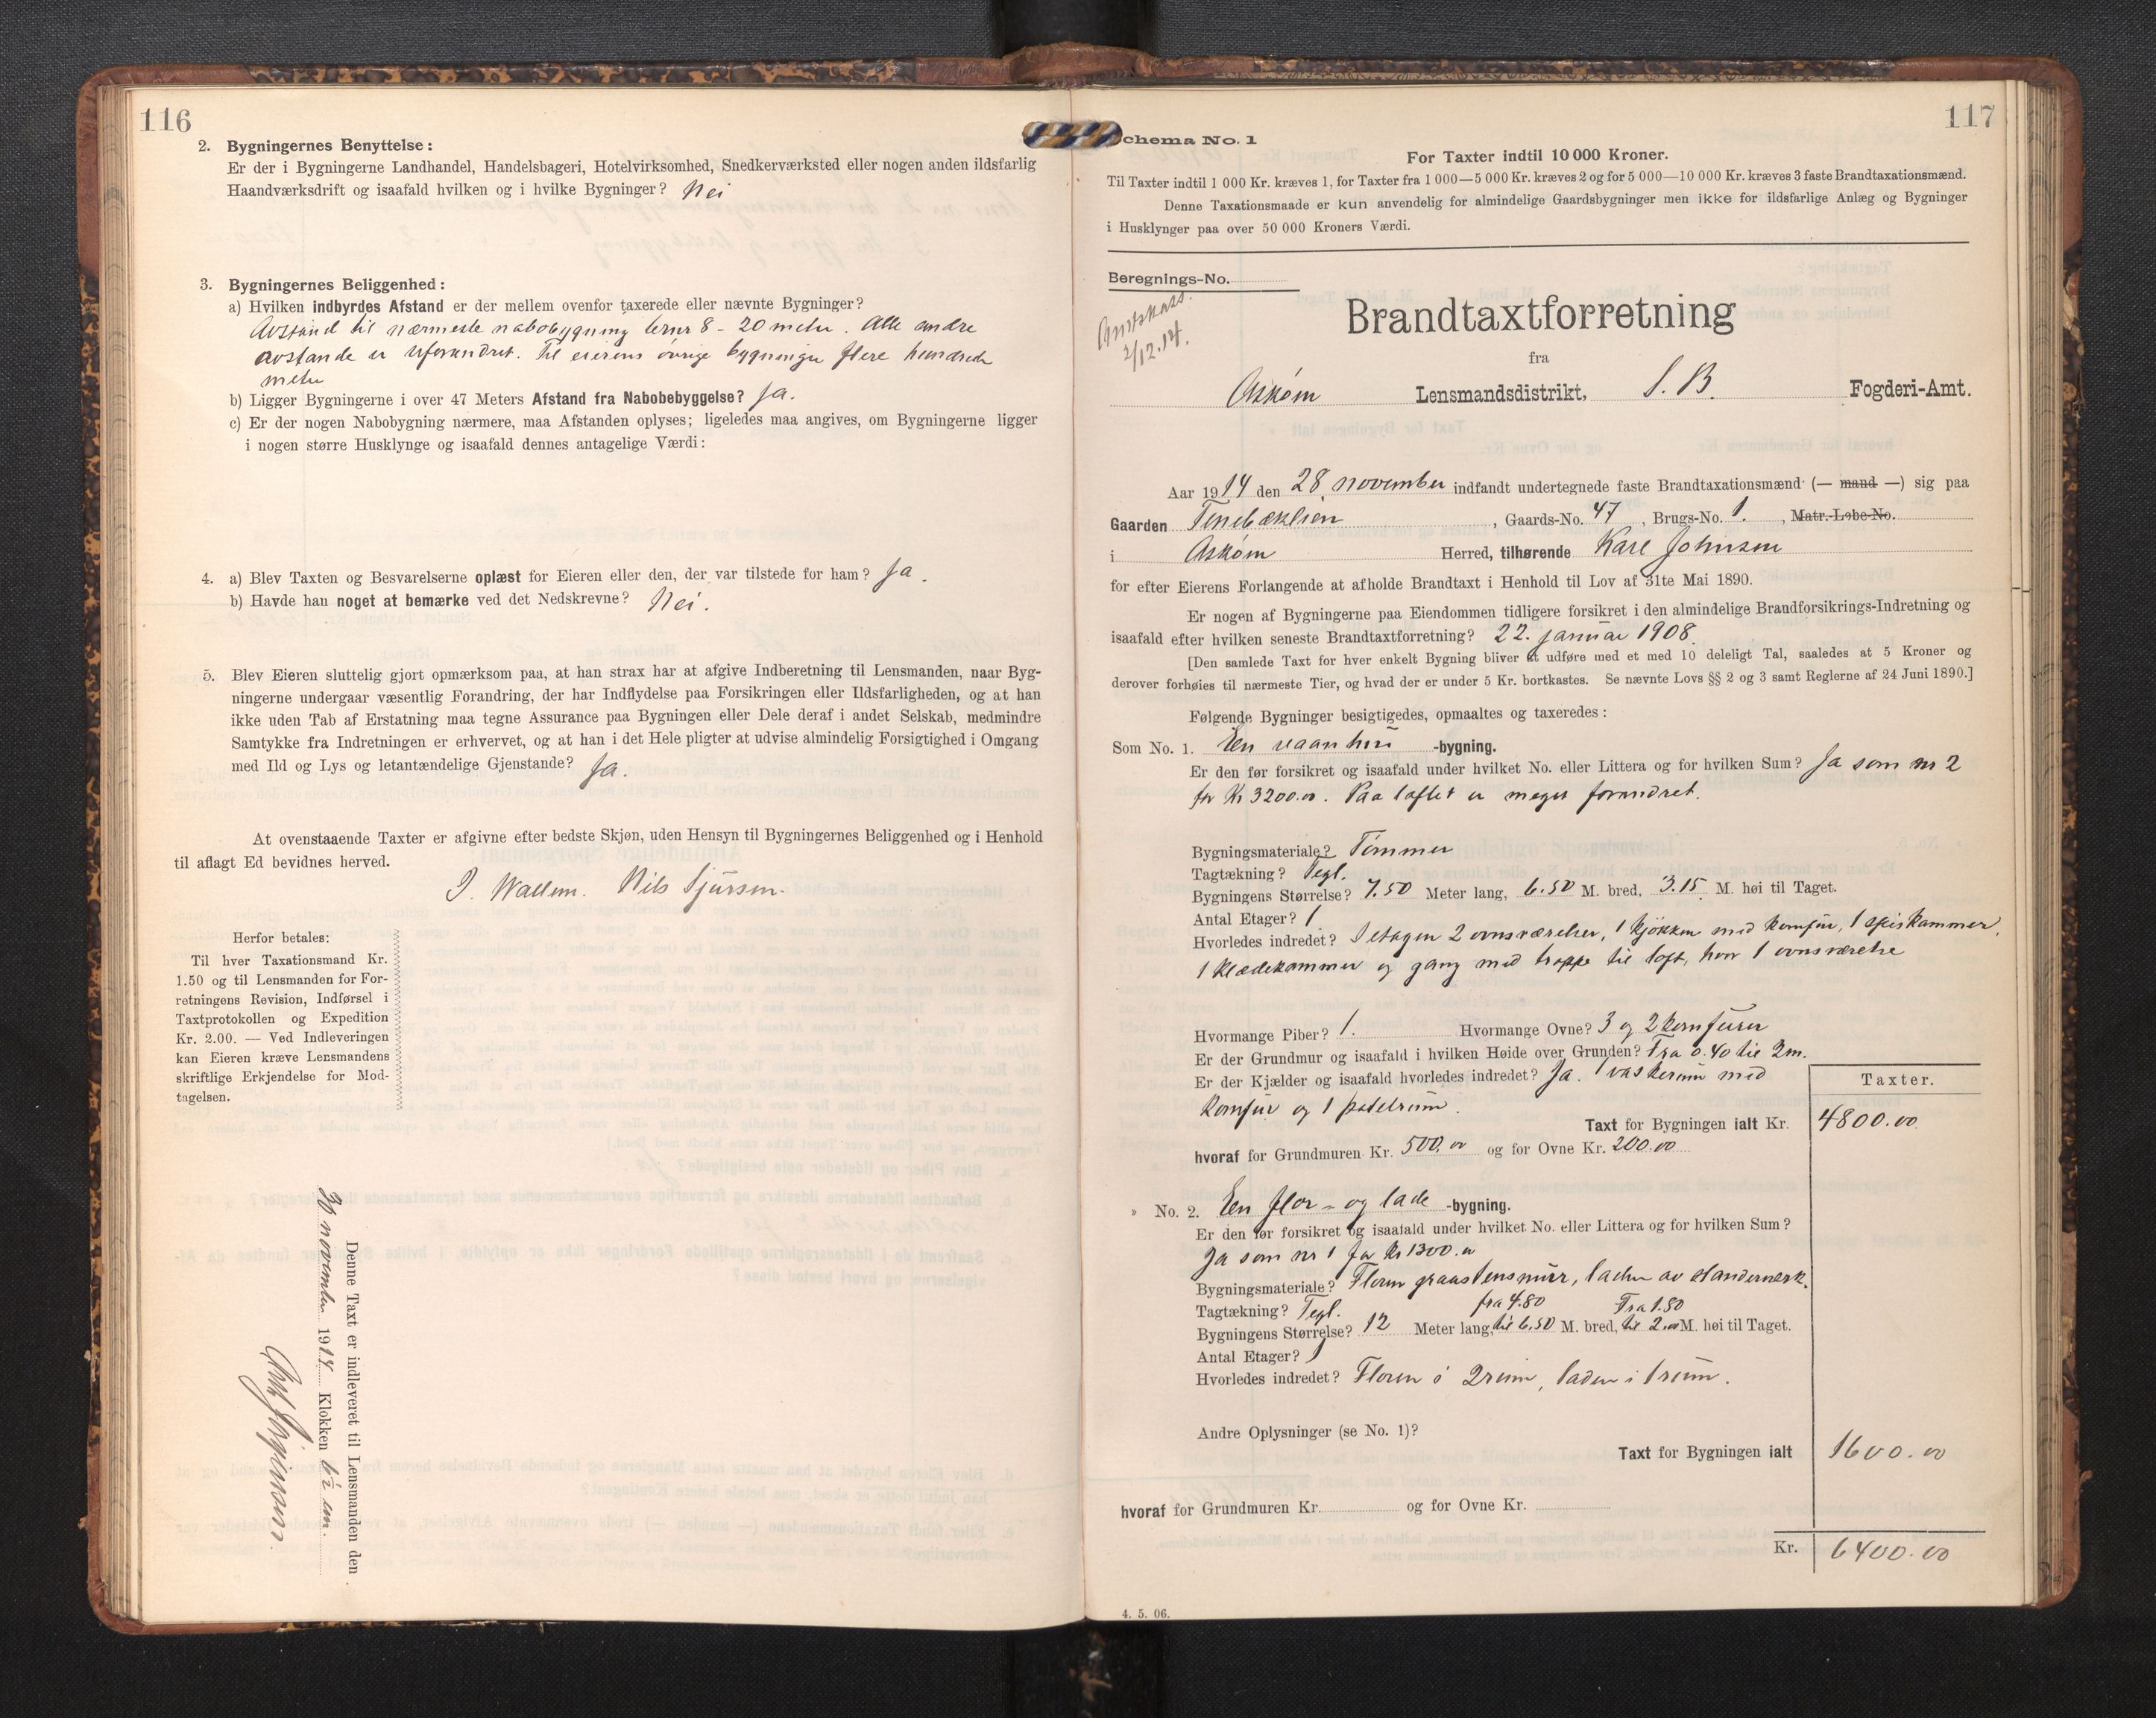 116
2. Bygningernes Benyttelse:
Er der i Bygningerne Landhandel, Handelsbageri, Hotelvirksomhed, Snedkerværksted eller nogen anden ildsfarlig
Haandværksdrift og isaafald hvilken og i hvilke Bygninger? Nei
3. Bygningernes Beliggenhed:
a) Hvilken indbyrdes Afstand er der mellem ovenfor taxerede eller nævnte Bygninger?
Avstand til nærmeste nabobygning 8 - 20 meter. Alle andre
avstande er uforandret. Til eierens øvrige bygninger flere hundrede
meter
b) Ligger Bygningerne i over 47 Meters Afstand fra Nabobebyggelse? Ja.
c) Er der nogen Nabobygning nærmere, maa Afstanden oplyses; ligeledes maa angives, om Bygningerne ligger
i nogen større Husklynge og isaafald dennes antagelige Værdi:
4. a) Blev Taxten og Besvarelserne oplæst for Eieren eller den, der var tilstede for ham? Ja.
b) Havde han noget at bemærke ved det Nedskrevne? Nei.
5. Blev Eieren sluttelig gjort opmærksom paa, at han strax har at afgive Indberetning til Lensmanden, naar Byg-
ningerne undergaar væsentlig Forandring, der har Indflydelse paa Forsikringen eller Ildsfarligheden, og at han
ikke uden Tab af Erstatning maa tegne Assurance paa Bygningen eller Dele deraf i andet Selskab, medmindre
Samtykke fra Indretningen er erhvervet, og at han i det Hele pligter at udvise almindelig Forsigtighed i Omgang
med Ild og Lys og letantændelige Gjenstande? Ja.
At ovenstaaende Taxter er afgivne efter bedste Skjøn, uden Hensyn til Bygningernes Beliggenhed og i Henhold
til aflagt Ed bevidnes herved.
Wallem. Nils Sjursen.
Herfor betales:
Til hver Taxationsmand Kr.
1.50 og til Lensmanden for For-
retningens Revision, Indførsel i
Taxtprotokollen og Expedition
Kr. 2.00. — Ved Indleveringen
kan Eieren kræve Lensmandens
skriftlige Erkjendelse for Mod-
tagelsen.
Denne Taxt er indleveret til Lensmanden den
30 november 1914 Klokken
117
chema No. 1
For Taxter indtil 10 000 Kroner.
Til Taxter indtil 1 000 Kr. kræves 1, for Taxter fra 1 000—5 000 Kr. kræves 2 og for 5 000—10 000 Kr. kræves 3 faste Brandtaxationsmænd.
Denne Taxationsmaade er kun anvendelig for almindelige Gaardsbygninger men ikke for ildsfarlige Anlæg og Bygninger
i Husklynger paa over 50 000 Kroners Værdi.
Beregnings-No.
2/12.14.
Brandtaxtforretning
fra
Askøens Lensmandsdistrikt, S. B. Fogderi-Amt.
Aar 1914 den 28. november indfandt undertegnede faste Brandtaxationsmænd (— mand —) sig paa
Gaarden , Gaards-No. 47, Brugs-No. 1., Matr.-Løbe-No.
i Askøen Herred, tilhørende Karl Johnsen
for efter Eierens Forlangende at afholde Brandtaxt i Henhold til Lov af 31te Mai 1890.
Er nogen af Bygningerne paa Eiendommen tidligere forsikret i den almindelige Brandforsikrings-Indretning og
isaafald efter hvilken seneste Brandtaxtforretning? 22. januar 1908.
[Den samlede Taxt for hver enkelt Bygning bliver at udføre med et med 10 deleligt Tal, saaledes at 5 Kroner og
derover forhøies til nærmeste Tier, og hvad der er under 5 Kr. bortkastes. Se nævnte Lovs §§ 2 og 3 samt Reglerne af 24 Juni 1890.]
Følgende Bygninger besigtigedes, opmaaltes og taxeredes:
Som No. 1. En vaanhus -bygning.
Er den før forsikret og isaafald under hvilket No. eller Littera og for hvilken Sum? Ja som nr 2
for Kr 3200.00. Paa loftet er meget forandret.
Bygningsmateriale? Tømmer
Tagtækning? Tegl.
Bygningens Størrelse? 7.50 Meter lang, 6.50 M. bred, 3.15 M. høi til Taget.
Antal Etager? 1
Hvorledes indredet? I etagen 2 ovnsværelser, 1 kjøkken med komfur, 1 spiskammer,
1 klædekammer og gang med trappe til loft, hvor 1 ovnsværelse
Hvormange Piber? 1. Hvormange Ovne? 3 og 2 komfurer
Er der Grundmur og isaafald i hvilken Høide over Grunden? Fra 0.40 til 2 m.
Er der Kjælder og isaafald hvorledes indredet? Ja. 1 vaskerum med
komfur og 1 potetrum.
Taxter.
Taxt for Bygningen ialt Kr. 4800.00
hvoraf for Grundmuren Kr. 500.00 og for Ovne Kr. 200.00
» No. 2. En flor- og lade -bygning.
Er den før forsikret og isaafald under hvilket No. eller Littera og for hvilken Sum?
Ja som nr 1 for Kr 1300.00
Bygningsmateriale? Floren graastensmur, laden av standerværk.
Tagtækning? Tegl. fra 4.80 Fra 1.80
Bygningens Størrelse? 12 Meter lang, til 6.50 M. bred, til 2.00 M. høi til Taget.
Antal Etager? 1
Hvorledes indredet? Floren i 2 rum, laden i 1 rum.
Andre Oplysninger (se No. 1)?
Taxt for Bygningen ialt 1600.00
hvoraf for Grundmuren Kr. og for Ovne Kr.
Kr. 6400.00
4. 5. 06.